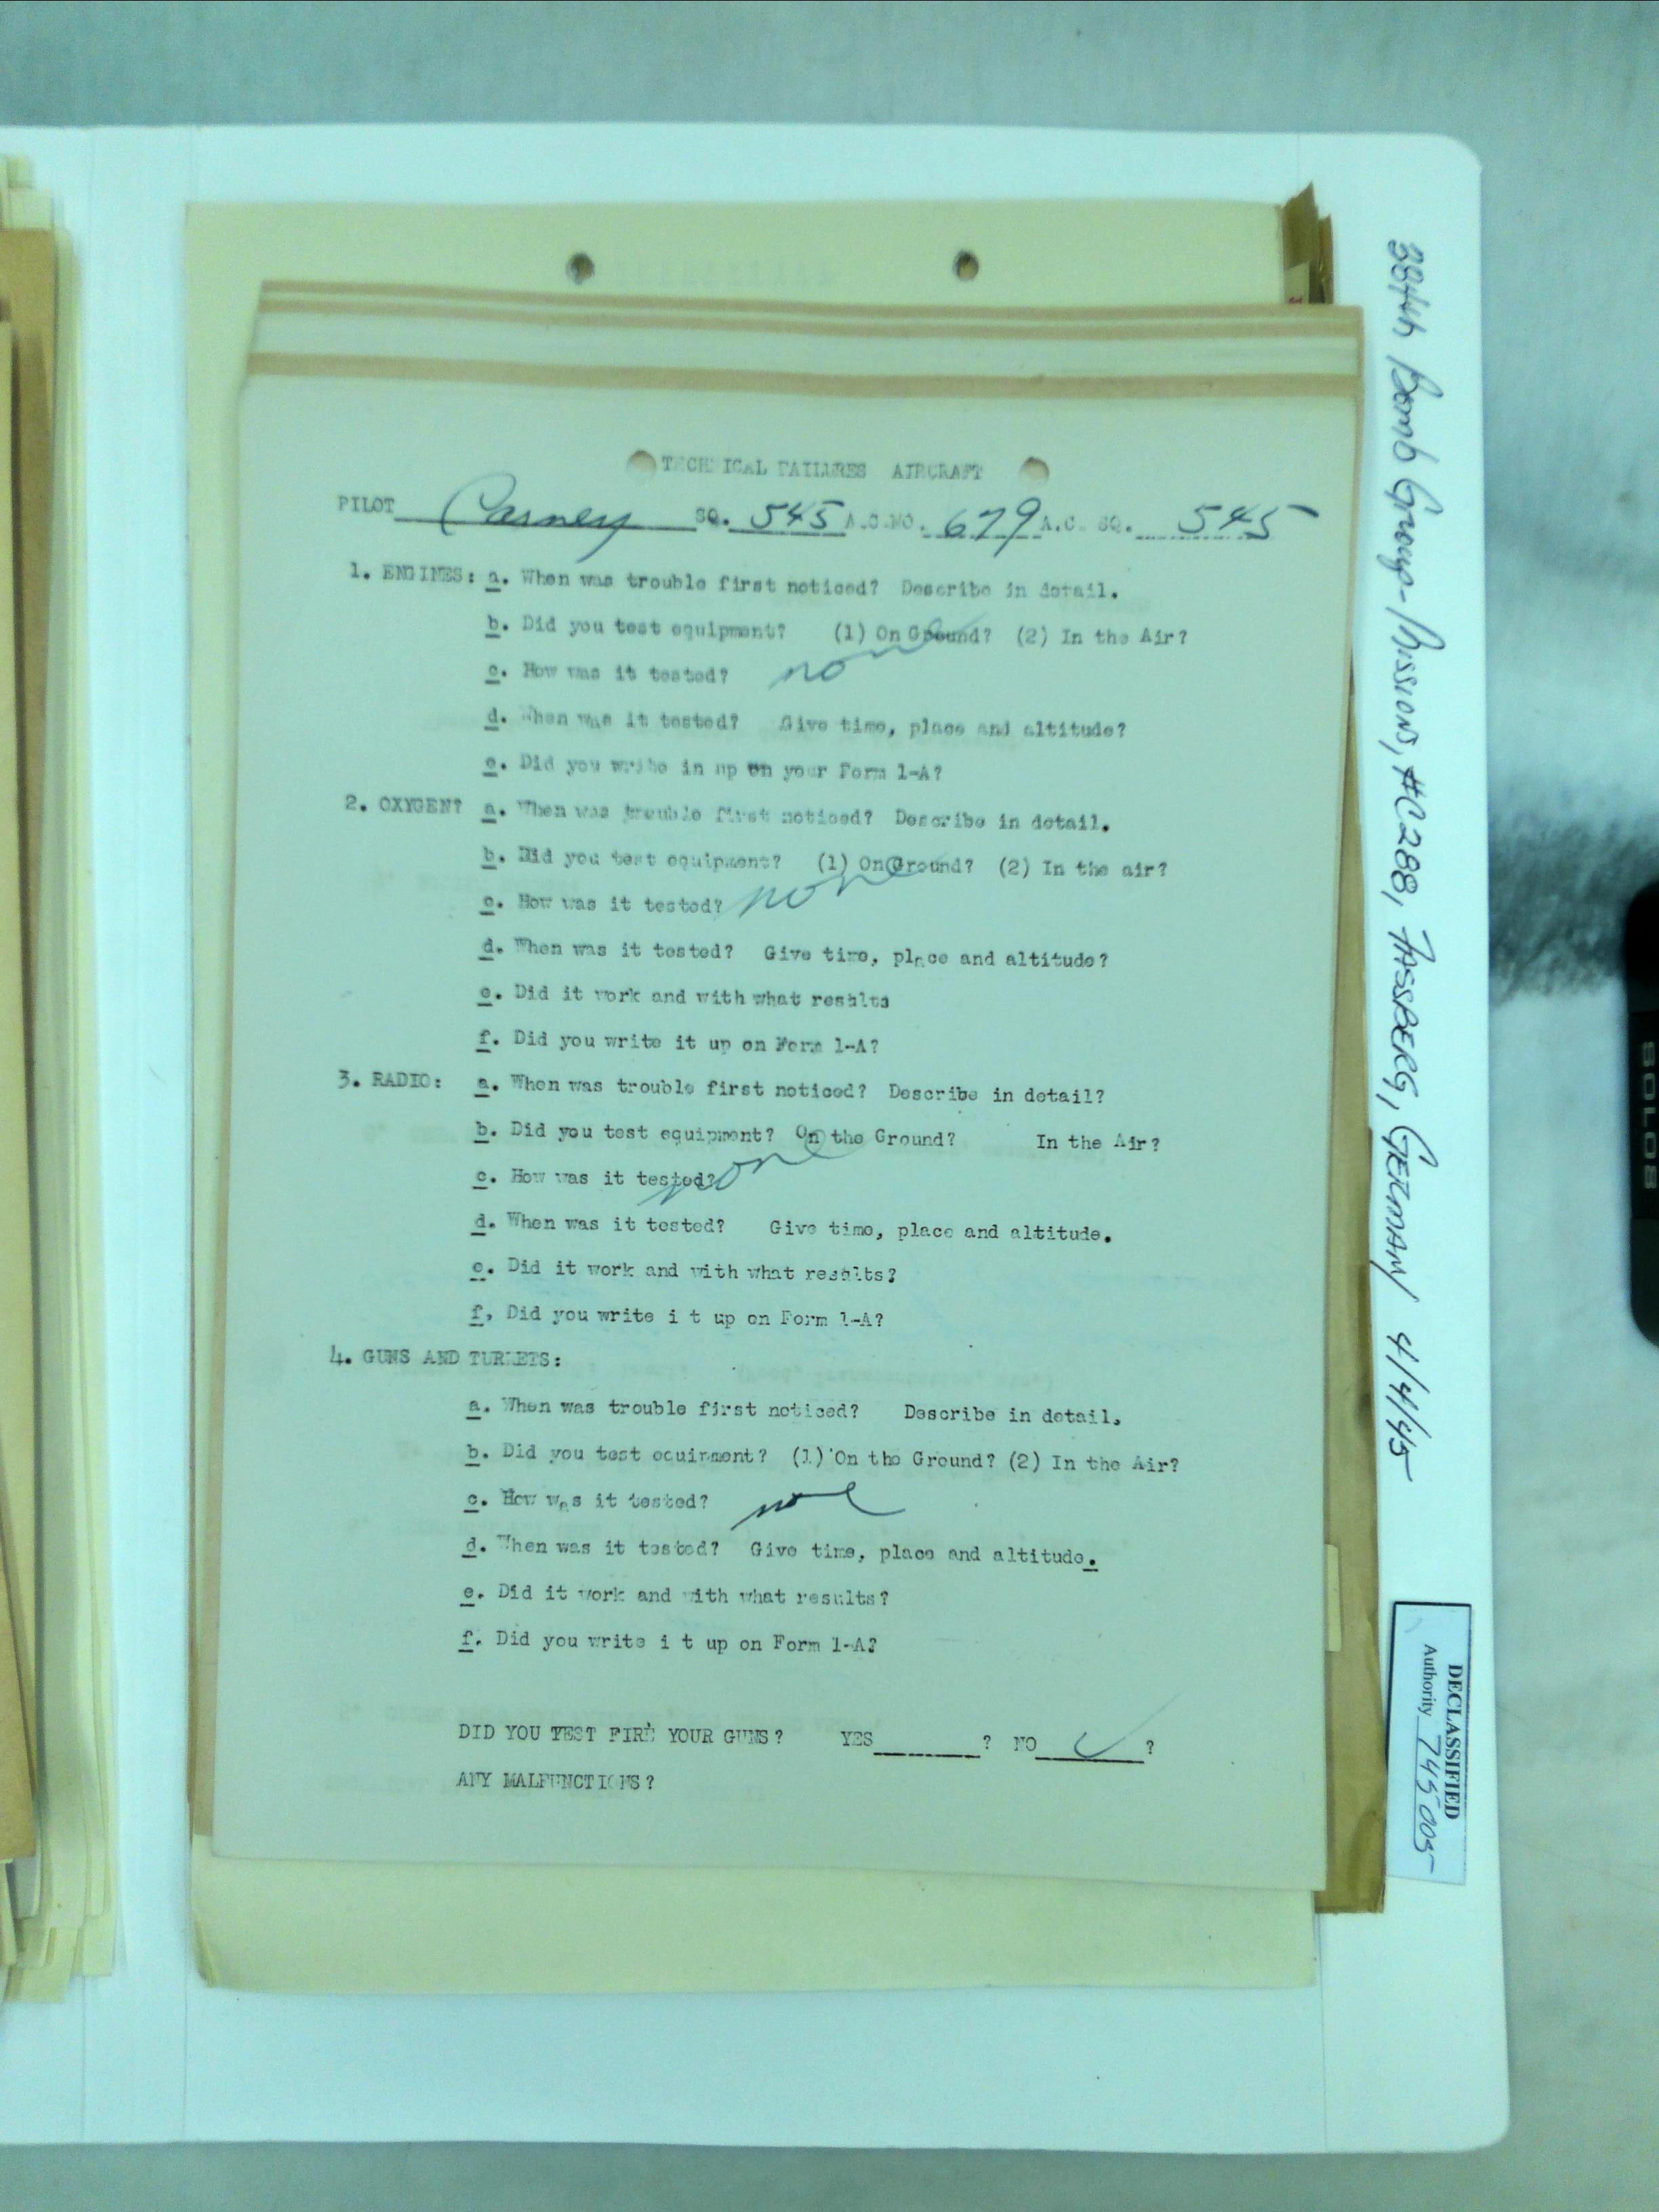 TECHNICAL FAILURES AIRCRAFT
PILOT Carney SQ. 545 A.C.NO. 679 A.C. SQ. 545
1. ENGINES: a. When was trouble first noticed? Describe in detail.
b. Did you test equipment? (1) On Ground? (2) In the Air?
none
c. How was it tested?
d. When was it tested? Give time, place and altitude?
e. Did you write in up on your Form 1-A?
2. OXYGEN? a. When was trouble first noticed? Describe in detail.
b. Did you test equipment? (1) On Ground? (2) In the air?
none
c. How was it tested?
d. When was it tested? Give time, place and altitude?
e. Did it work and with what results
f. Did you write it up on Form 1-A?
3. RADIO: a. When was trouble first noticed? Describe in detail?
b. Did you test equipment? On the Ground? In the Air?
none
c. How was it tested?
d. When was it tested? Give time, place and altitude.
e. Did it work and with what results?
f, Did you write i t up on Form 1-A?
4. GUNS AND TURRETS:
a. When was trouble first noticed? Describe in detail.
b. Did you test equipment? (1) On the Ground? (2) In the Air?
c. How was it tested? none
d. When was it tested? Give time, place and altitude.
e. Did it work and with what results?
f. Did you write i t up on Form 1-A?
DID YOU TEST FIRE YOUR GUNS? YES ? NO ✓ ?
ANY MALFUNCTIONS?
384th Bomb Group-Missions, #C288, FASSBERG, GERMANY 4/4/45
DECLASSIFIED
Authority 745005
SOLO8